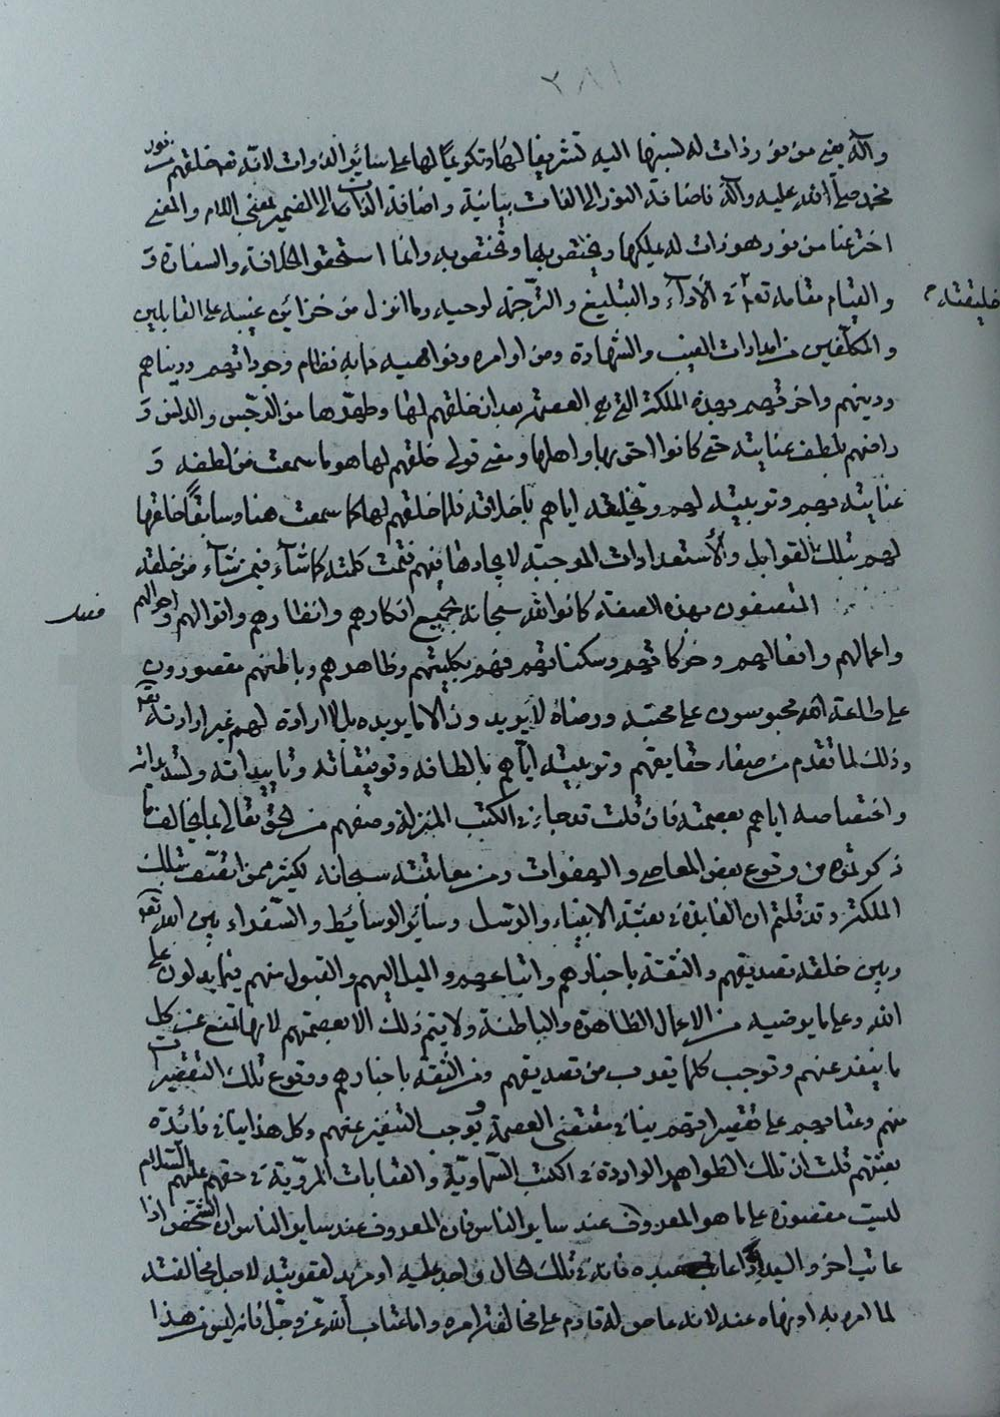 ٢٨١
وآله يعني من نور ذات له نسبها اليه تشريفا لها وتكريما لها على ساير الذوات لانه تعالى خلقهم من نور
محمد صلى الله عليه وآله فاضافة النور الى الذات بيانية واضافة الذات الى الضمير بمعنى اللام والمعنى
اخترعنا من نور هو ذات له يملكها ويختص بها وتختص به وانما استحقوا الخلافة والسفارة و
والقيام مقامه تعالى في الأداء والتبليغ والترجمة لوحيه وما انزل من خزائن غيبه على القابلين
خليقته م
والمكلفين من امدادات الغيب والشهادة ومن اوامره ونواهيه ما به نظام وجوداتهم ودنياهم
ودينهم واخرتهم بهذه الملكة التي هي العصمة بعد ان خلقهم لها وطهرها من الرجس والدنس و
بلطف عنايته حتى كانوا احق بها واهلها ومعنى قولي خلقهم لها هو ما سمعت من لطفه و
عنايته بهم وتربيته لهم وتخليقه اياهم باخلاقه فلما خلقهم لها كما سمعت هنا وسابقا خلقها
لهم بتلك القوابل والأستعدادات الموجبة لايجادها فيهم فتمت كلمته كما شاء فيمن شاء من خلقه
فصل
المتصفون بهذه الصفة كانوا لله سبحانه بجميع افكارهم وانظارهم واقوالهم واحوالهم
واعمالهم وافعالهم وحركاتهم وسكناتهم فهم بكليتهم وظاهرهم وباطنهم مقصورون
على طاعة الله محبوسون على محبته ورضاه لا يريدون الا ما يريده بل لا ارادة لهم غير ارادته تعالى
وذلك لما تقدم من صفاء حقايقهم وتربيته اياهم بالطافه وتوفيقاته وتاييداته وتسديداته
واختصاصه اياهم بعصمته فان قلت قد جاء في الكتب المنزلة وصفهم من الحق تعالى بما يخالف ما
ذكرتموه من وقوع بعض المعاصي والهفوات ومن معاتبته سبحانه لكثير ممن اتصف بتلك
الملكة وقد قلتم ان الفايدة في بعثة الانبياء والرسل وساير الوسائط والسفراء بين الله تعالى
وبين خلقه تصديقهم والثقة باخبارهم واتباعهم والميل اليهم والقبول منهم فيما يدلون على
الله وعلى ما يرضيه من الاعمال الظاهرة والباطنة ولا يتم ذلك الا بعصمتهم لانها تمنع عن كل
ما ينفر عنهم وتوجب كلما يقرب من تصديقهم ومن الثقة باخبارهم ووقوع تلك التقصيرات
منهم وعتابهم على تقصيراتهم ينافي مقتضى العصمة ويوجب التنفير عنهم وكل هذا ينافي فائدة
بعثتهم قلت ان تلك الظواهر الواردة في الكتب السماوية والعتابات المروية في حقهم عليهم السلام
ليست مقصورة على ما هو المعروف عند ساير الناس فان المعروف عند ساير الناس ان الشخص اذا
عاتب اخر والسيد اذا عاتب عبده فانه في تلك الحال واجد عليه او مريد لعقوبته لاجل مخالفته
لما امره به او نهاه عنه لانه عاص له قادم على مخالفة امره واما عتاب الله عز وجل فانه ليس من هذا